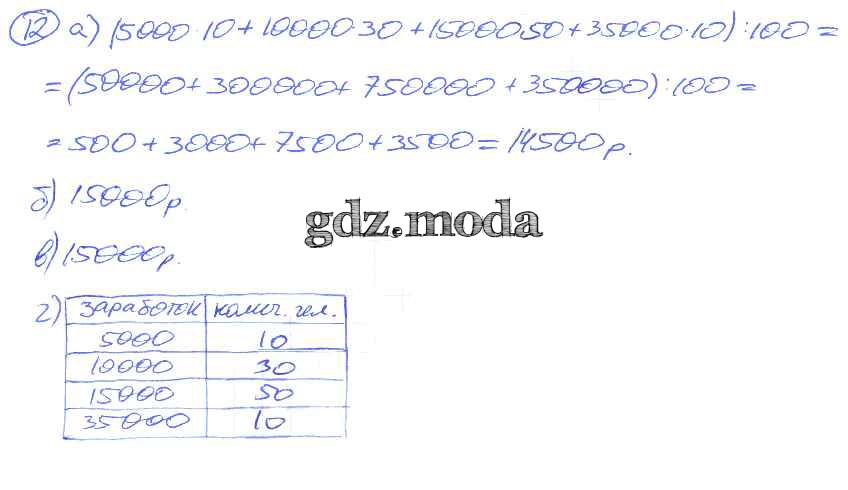 12 а) (5000·10+10000·30+15000·50+35000·10):100=
=(50000+300000+750000+350000):100=
=500+3000+7500+3500=14500р.
б) 15000р.
gdz.moda
в) 15000р.
г) заработок колич. чел.
5000 10
10000 30
15000 50
35000 10